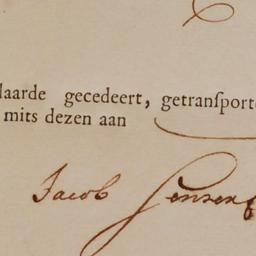 laarde gecedeert, getranſporte
mits dezen aan
Jacob Jensen